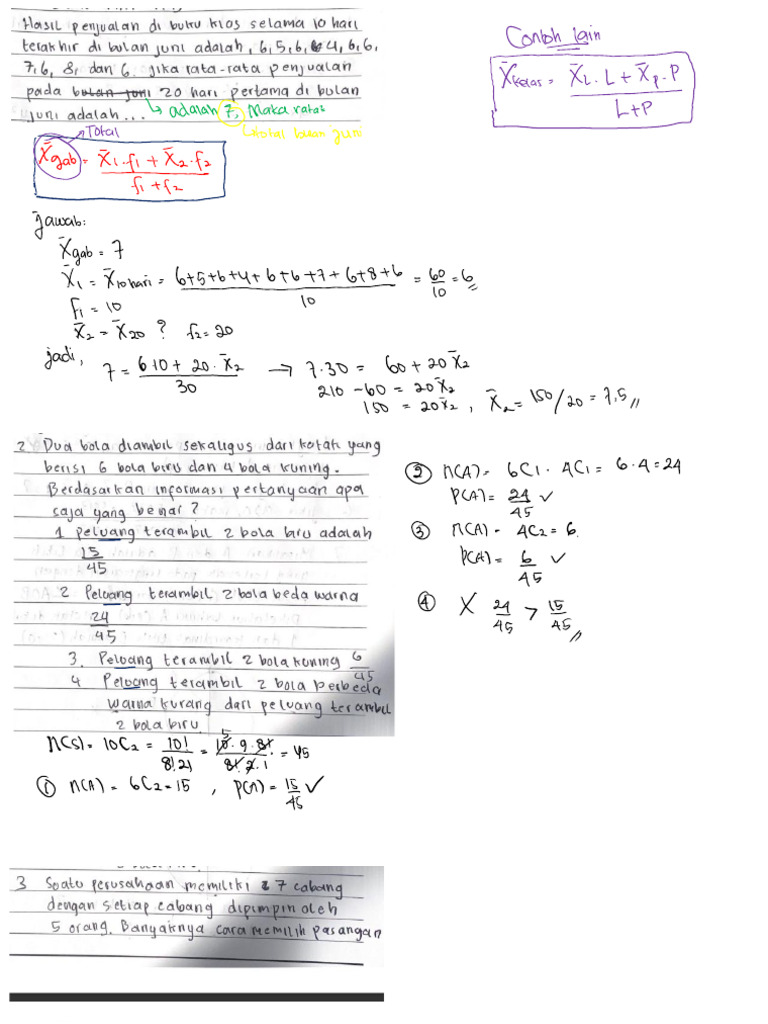 Hasil penjualan di buku kios selama 10 hari
terakhir di bulan juni adalah, 6, 5, 6, 4, 6, 6,
7, 6, 8, dan 6. jika rata-rata penjualan
pada bulan juni 20 hari pertama di bulan
juni adalah... ↳ adalah 7, Maka ratas
→ Total
↳ total bulan juni
X̄gab = X̄1.f1 + X̄2.f2
f1 + f2
Contoh lain
X̄kelas = X̄L.L + X̄p.P
L+P
Jawab:
X̄gab = 7
X̄1 = X̄10hari = 6+5+6+4+6+6+7+6+8+6 = 60 = 6
10 10
f1 = 10
X̄2 = X̄20 ? f2 = 20
jadi,
7 = 6.10 + 20.X̄2 → 7.30 = 60 + 20X̄2
30
210 - 60 = 20X̄2
150 = 20X̄2, X̄2 = 150/20 = 7,5 //
2 Dua bola diambil sekaligus dari kotak yang
berisi 6 bola biru dan 4 bola kuning.
Berdasarkan informasi pertanyaan apa
saja yang benar?
1 peluang terambil 2 bola biru adalah
15
45
2 Peluang terambil 2 bola beda warna
24
45
3. Peluang terambil 2 bola kuning 6
45
4 Peluang terambil 2 bola berbeda
warna kurang dari peluang terambil
2 bola biru.
n(S) = 10C2 = 10! = 10.9.8! = 45
8!.2! 8!.2.1
5
① n(A) = 6C2 = 15, p(A) = 15 ✓
45
② n(A) = 6C1 . 4C1 = 6.4 = 24
p(A) = 24 ✓
45
③ n(A) = 4C2 = 6.
p(A) = 6 ✓
45
④ X 24 > 15
45 45 //
3 Suatu perusahaan memiliki 7 cabang
dengan setiap cabang dipimpin oleh
5 orang. Banyaknya cara memilih pasangan